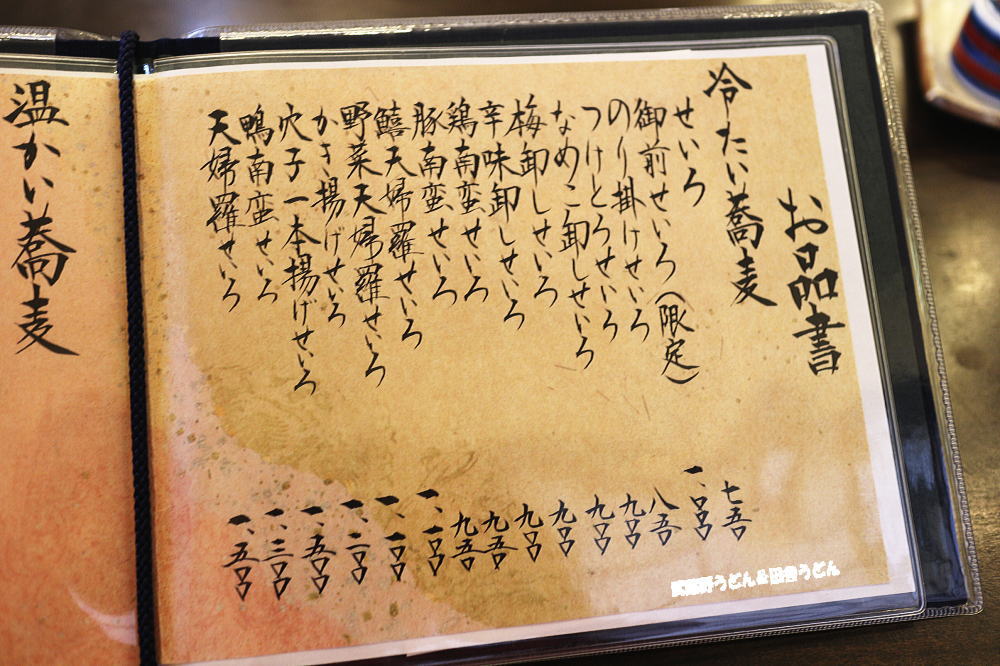 お品書
冷たい蕎麦
せいろ 七五〇
御前せいろ(限定) 一、〇〇〇
のり掛けせいろ 八五〇
つけとろせいろ 九〇〇
なめこ卸しせいろ 九〇〇
梅卸しせいろ 九〇〇
辛味卸しせいろ 九〇〇
鶏南蛮せいろ 九五〇
豚南蛮せいろ 九五〇
鱚天婦羅せいろ 一、一〇〇
野菜天婦羅せいろ 一、一〇〇
かき揚げせいろ 一、二〇〇
穴子一本揚げせいろ 一、五〇〇
鴨南蛮せいろ 一、三〇〇
天婦羅せいろ 一、五〇〇
温かい蕎麦
武蔵野うどん&田舎うどん